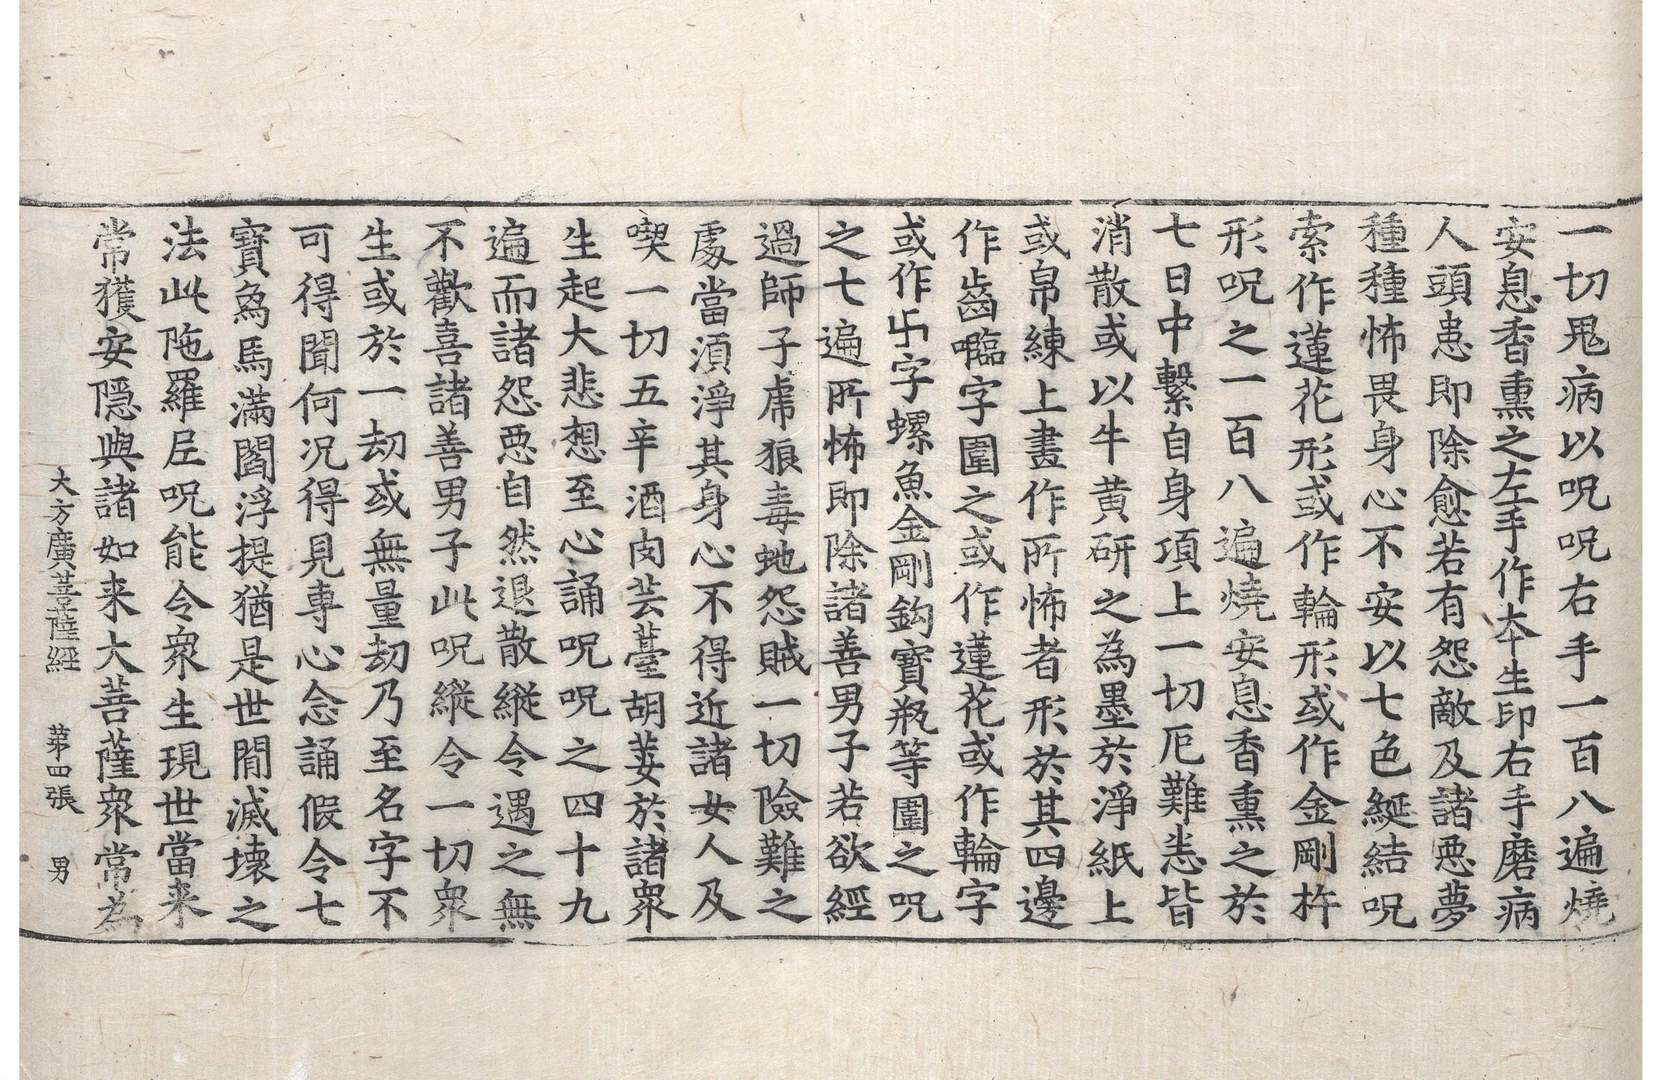 一切鬼病以呪呪右手一百八遍燒
安息香熏之左手作本生印右手磨病
人頭患即除愈若有怨敵及諸惡夢
種種怖畏身心不安以七色綖結呪
索作蓮花形或作輪形或作金剛杵
形呪之一百八遍燒安息香熏之於
七日中繫自身項上一切厄難恙皆
消散或以牛黄研之為墨於淨紙上
或帛練上畫作所怖者形於其四邊
作齒嚂字圍之或作蓮花或作輪字
或作卐字螺魚金剛鈎寶瓶等圍之呪
之七遍所怖即除諸善男子若欲經
過師子虎狼毒虵怨賊一切險難之
處當須淨其身心不得近諸女人及
喫一切五辛酒肉芸薹胡荽於諸衆
生起大悲想至心誦呪呪之四十九
遍而諸怨惡自然退散縱令遇之無
不歡喜諸善男子此呪縱令一切衆
生或於一劫或無量劫乃至名字不
可得聞何況得見專心念誦假令七
寶為馬滿閻浮提猶是世閒滅壞之
法此陁羅𡰱呪能令衆生現世當来
常獲安隱與諸如来大菩薩衆常為
大方廣菩薩經　第四張　男